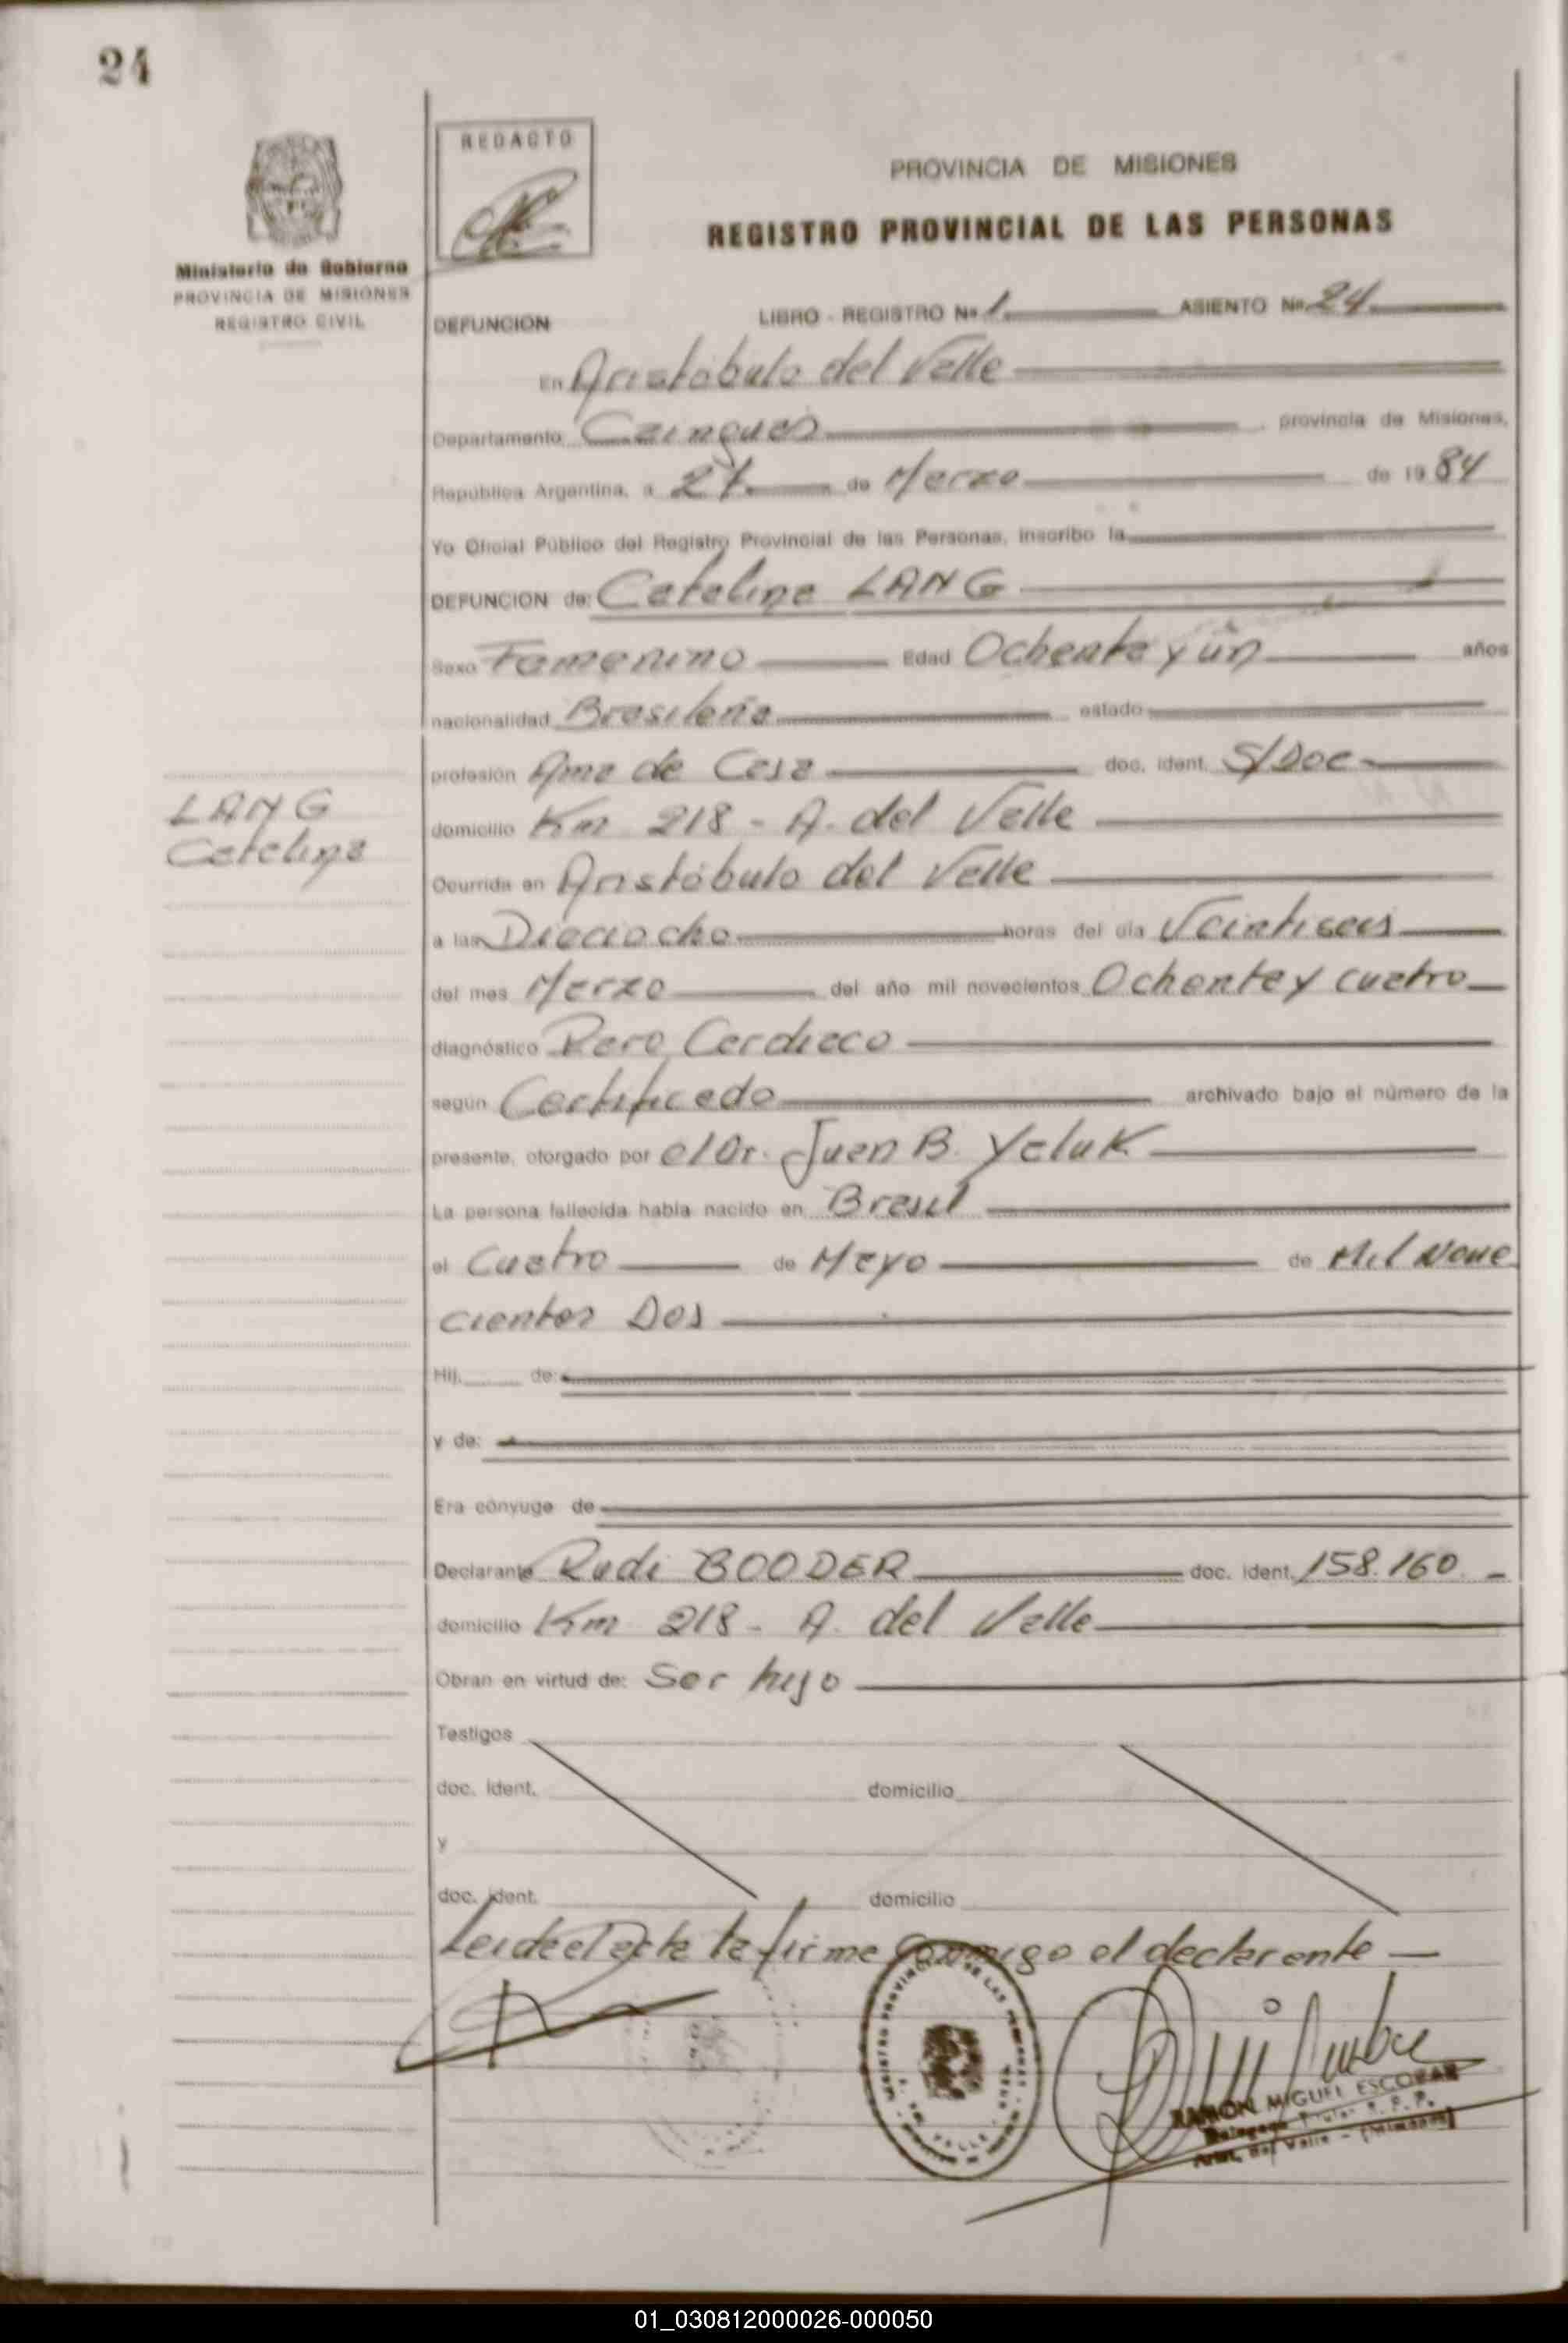 24
REDACTO
PROVINCIA DE MISIONES
REGISTRO PROVINCIAL DE LAS PERSONAS
Ministerio de Gobierno
PROVINCIA DE MISIONES
REGISTRO CIVIL
DEFUNCION LIBRO - REGISTRO Nº 1 ASIENTO Nº 24
En Aristóbulo del Valle
Departamento Cainguas provincia de Misiones,
República Argentina, a 27 de Marzo de 19 84
Yo Oficial Público del Registro Provincial de las Personas, inscribo la
DEFUNCION de: Catalina LANG
Sexo Femenino Edad Ochenta y un años
nacionalidad Brasileña estado
profesión Ama de Casa doc. ident. S/Doc
LANG
Catalina
domicilio Km 218 - A. del Valle
Ocurrida en Aristóbulo del Valle
a las Dieciocho horas del día Veintiseis
del mes Marzo del año mil novecientos Ochenta y cuatro
diagnóstico Paro Cardiaco
según Certificado archivado bajo el número de la
presente, otorgado por el Dr. Juan B. Yaluk
La persona fallecida había nacido en Brasil
el Cuatro de Mayo de Mil Nove
cientos Dos
Hij de:
y de:
Era cónyuge de
Declarante Rudi BOODER doc. ident. 158.160 -
domicilio Km 218 - A. del Valle
Obran en virtud de: Ser hijo
Testigos
doc. ident. domicilio
y
doc. ident. domicilio
Leida el acta la firma conmigo el declarante
RAMON MIGUEL ESCOBAR
01_030812000026-000050